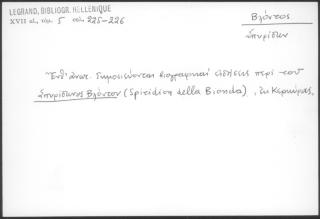 LEGRAND, BIBLIOGR. HELLENIQUE
XVII αἰ., τόμ. 5 σελ. 225-226
Βλόντος
Σπυρίδων
Ἔνθ' ἀνωτ. δημοσιεύονται βιογραφικαὶ εἰδήσεις περὶ τοῦ
Σπυρίδωνος Βλόντου (Spiridion della Bionda), ἐκ Κερκύρας.